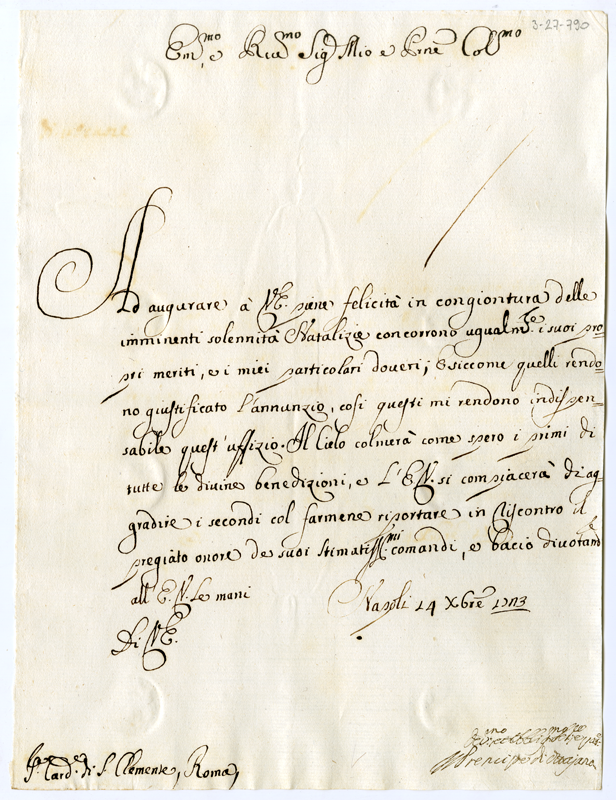 3-27-790
Em.mo e Rev.mo Sig.r Mio e P̃rne Col.mo
Ad augurare à V.E. piene felicità in congiontura delle
imminenti solennità Natalizie concorrono ugualm.te i suoi pro=
pri meriti, e i miei particolari doveri; E siccome quelli rendo=
no giustificato l'annunzio, così questi mi rendono indispen=
sabile quest'uffizio. Il Cielo colmerà come spero i primi di
tutte le divine benedizioni, e L'E.V. si compiacerà di ag=
gradire i secondi col farmene riportare in riscontro il
pregiato onore de suoi stimatiss.mi comandi, e bacio divotam.te
all'E.V. Le mani
Napoli 14 Xbre 1713
Di V.E.
S.r Card.e di S. Clemente, Roma